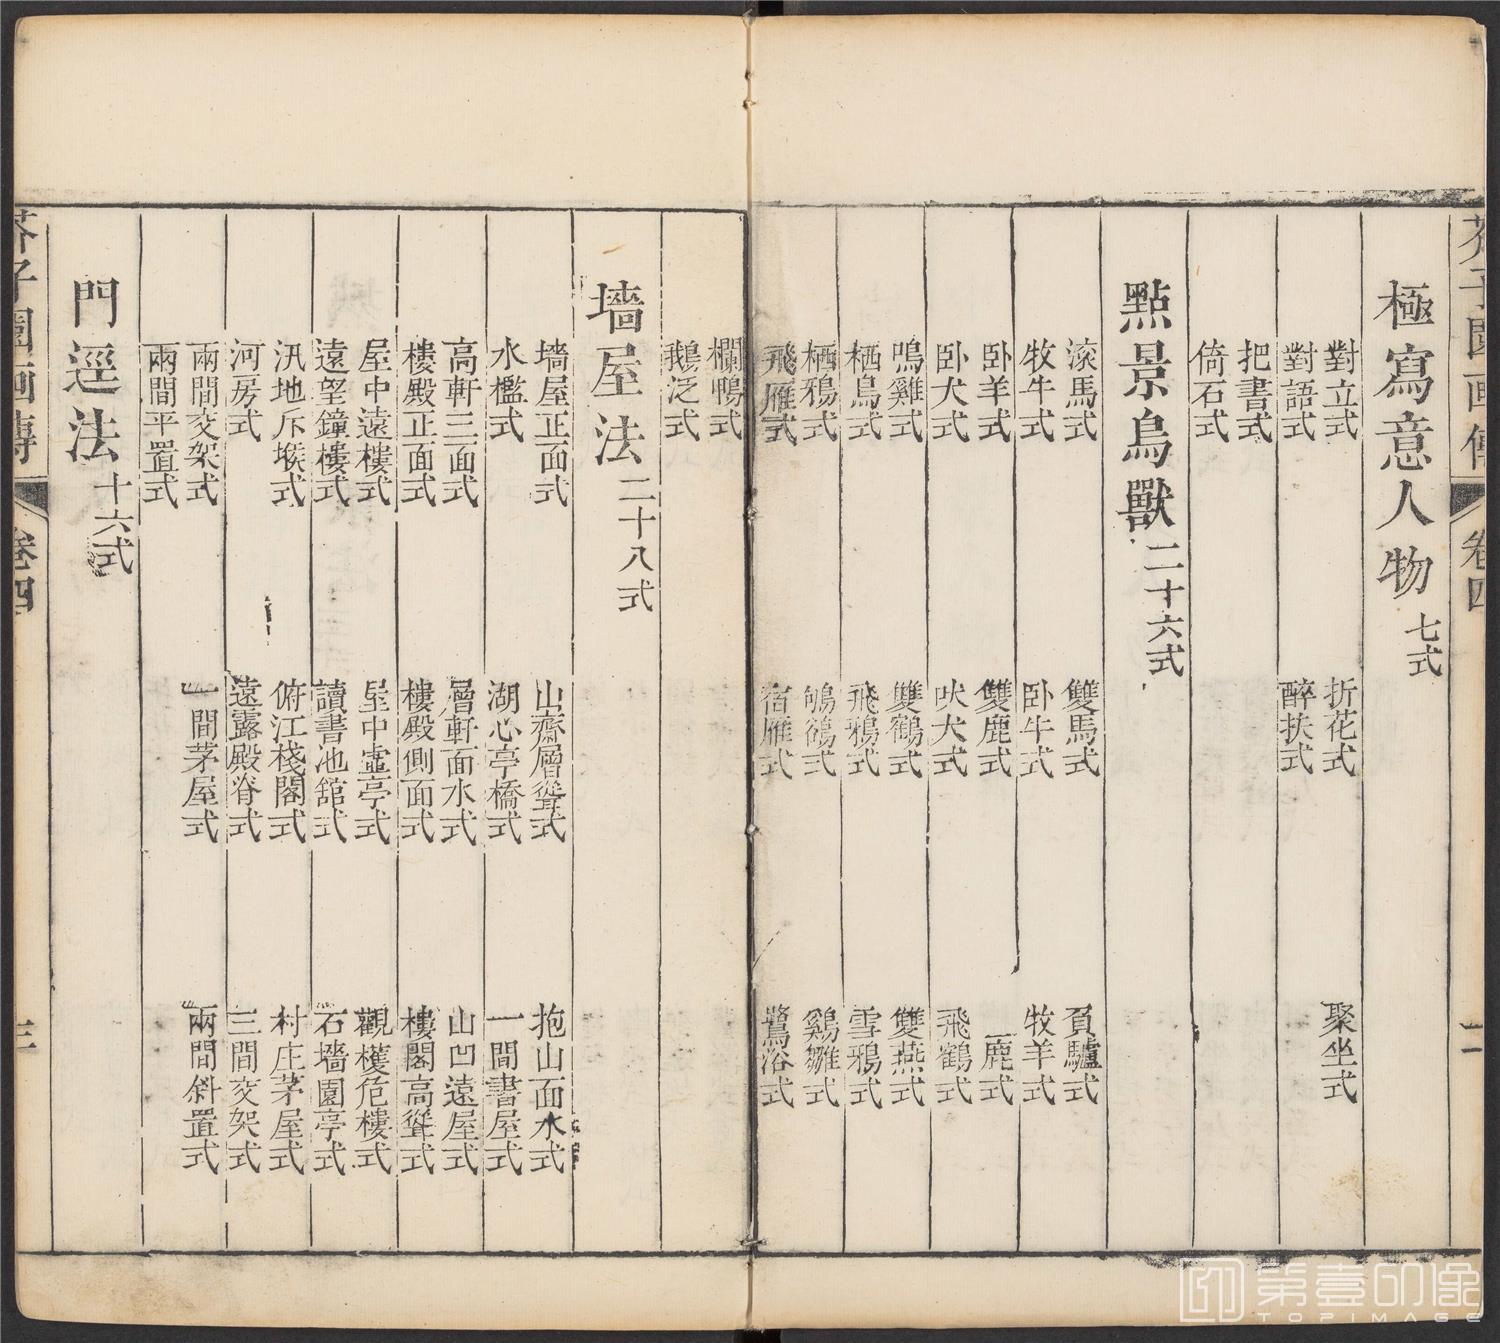 芥子園畫傳
卷四
二
極寫意人物 七式
對立式 折花式 聚坐式
對語式 醉扶式
把書式
倚石式
點景鳥獸 二十六式
滾馬式 雙馬式 負驢式
牧牛式 臥牛式 牧羊式
臥羊式 雙鹿式 一鹿式
臥犬式 吠犬式 飛鶴式
鳴雞式 雙鶴式 雙燕式
栖鳥式 飛鴉式 雪鴉式
栖鴉式 鳩鵒式 鷄雛式
飛雁式 宿雁式 鷺浴式
欄鴨式
鵝泛式
墻屋法 二十八式
墻屋正面式 山齋層聳式 抱山面水式
水檻式 湖心亭橋式 一間書屋式
高軒三面式 層軒面水式 山凹遠屋式
樓殿正面式 樓殿側面式 樓閣高聳式
屋中遠樓式 屋中虛亭式 觀穫危樓式
遠望鐘樓式 讀書池舘式 石墻園亭式
汛地斥堠式 俯江棧閣式 村庄茅屋式
河房式 遠露殿脊式 三間交架式
兩間交架式 一間茅屋式 兩間斜置式
兩間平置式
門逕法 十六式
芥子園畫傳
卷四
三
第壹印像
TOPIMAGE